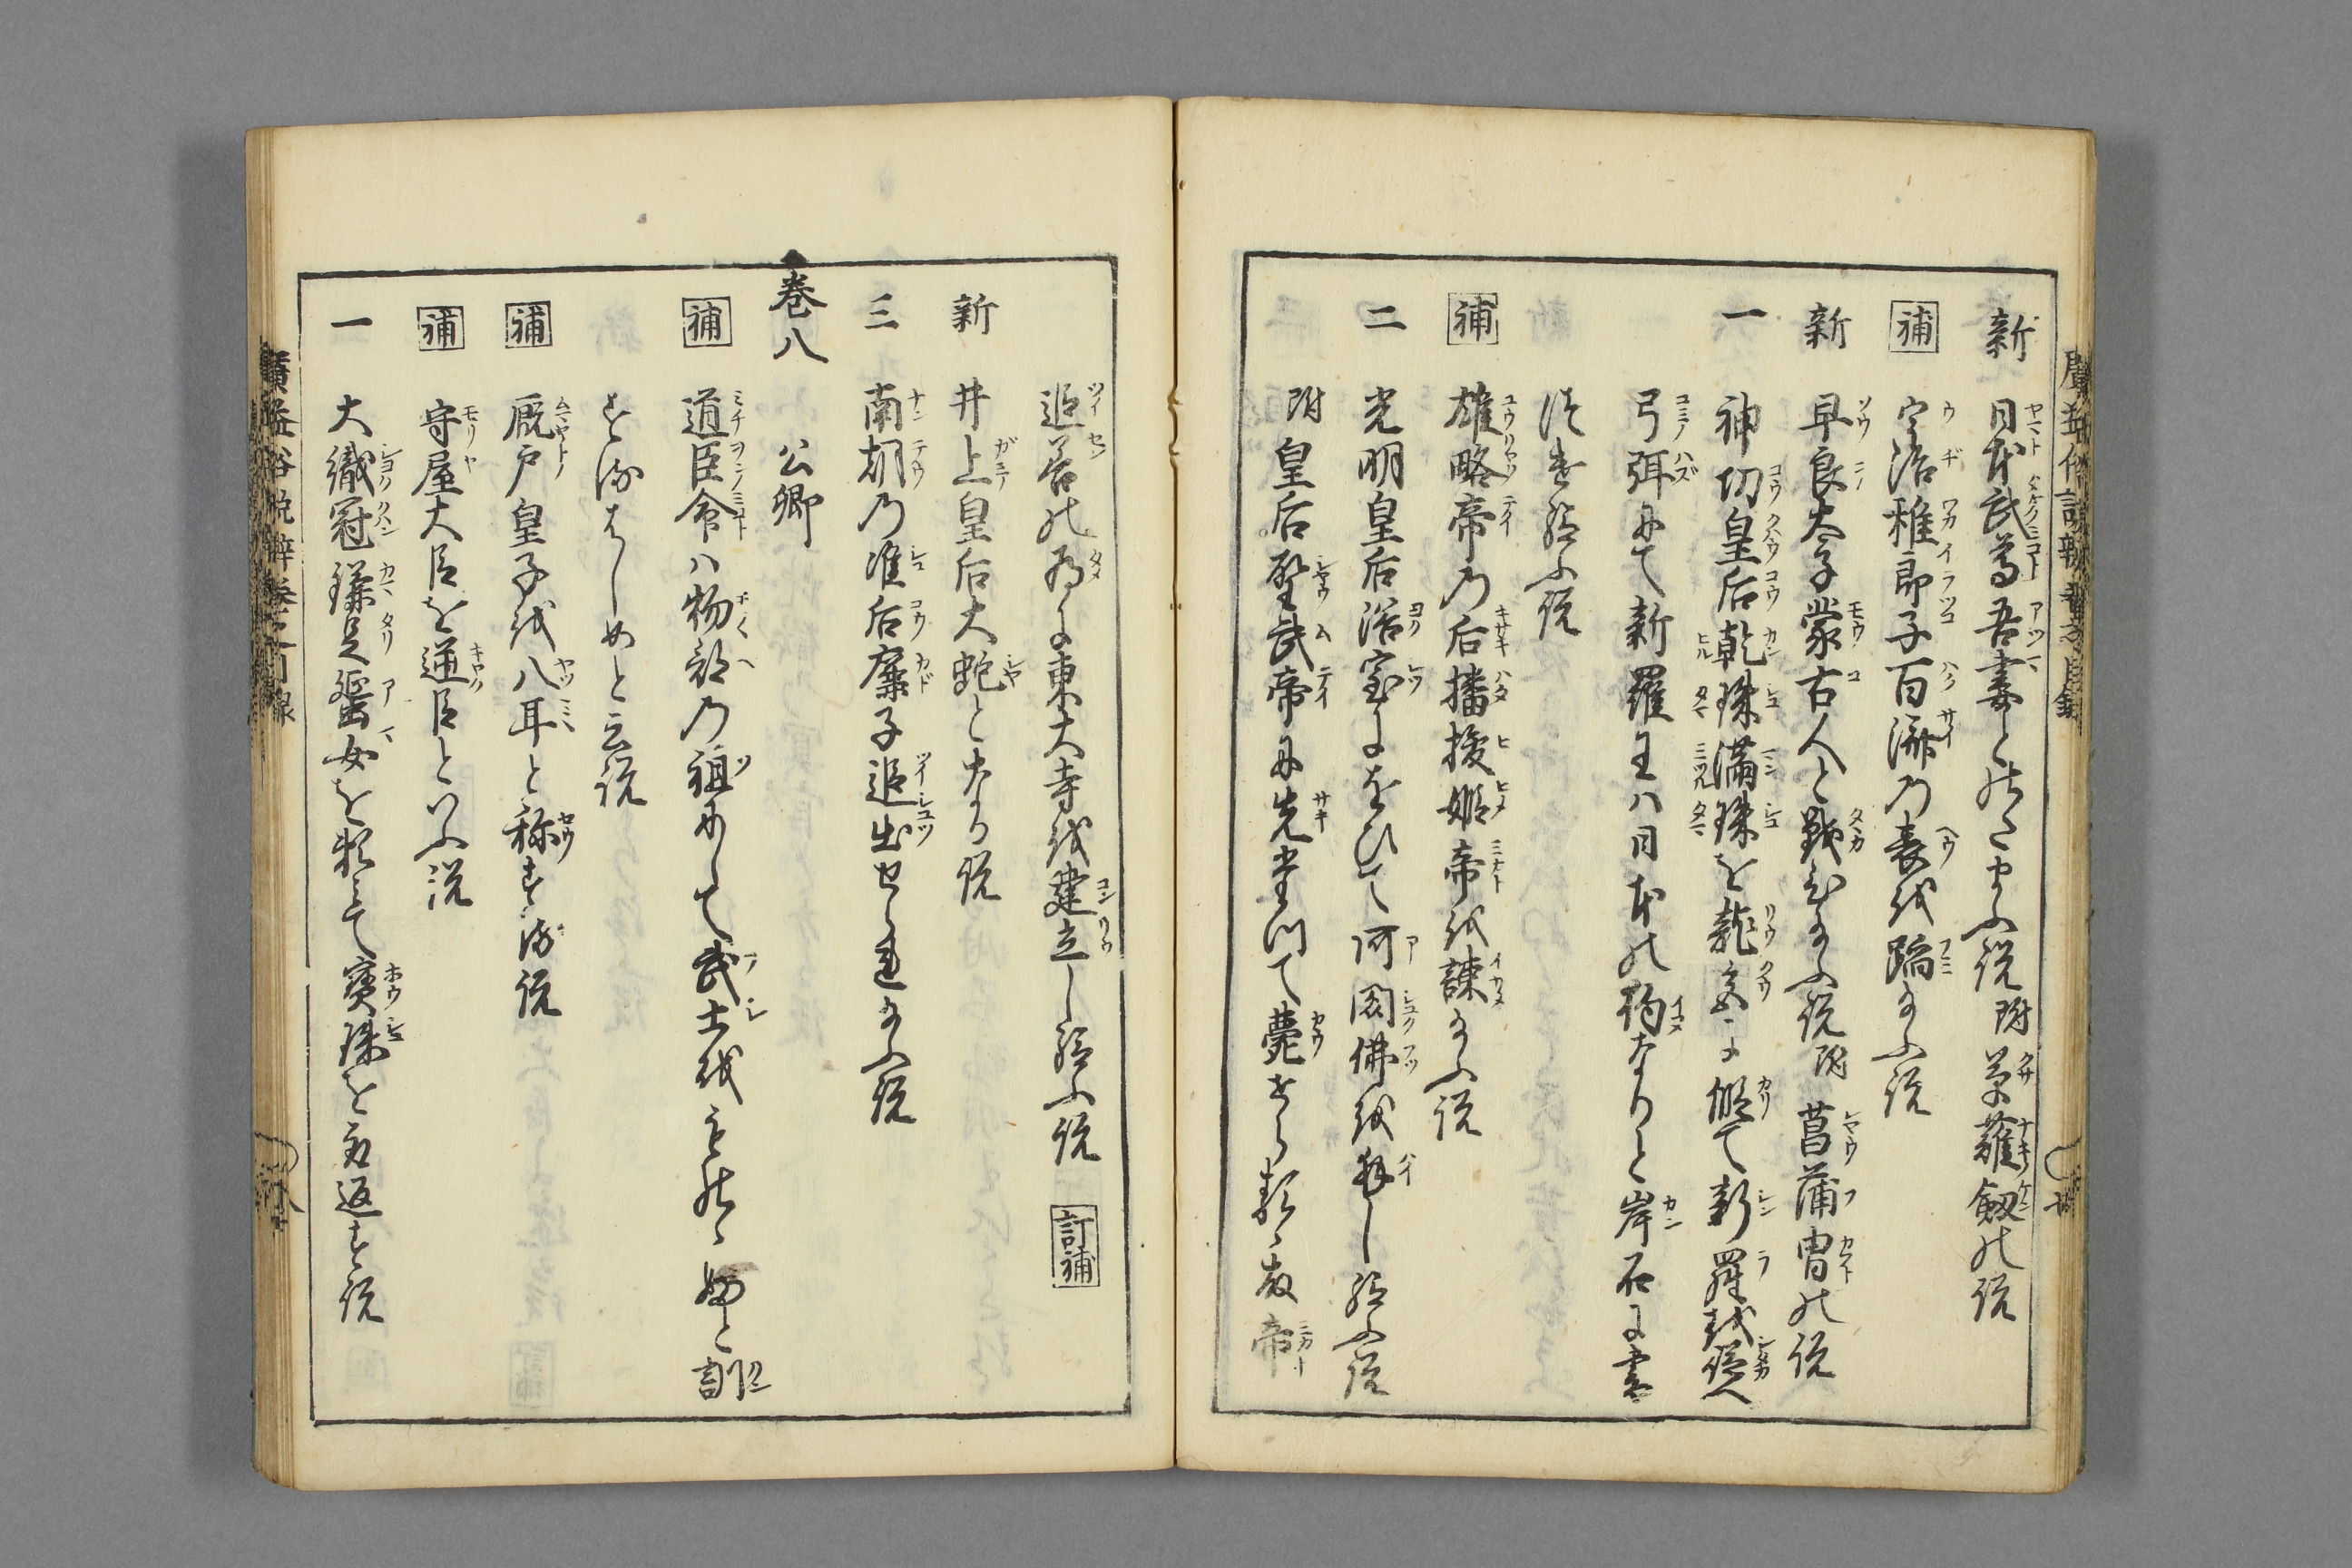 新 日本武尊吾妻とのたまふ説 附 草薙劔の説
補 宇治稚郎子百済乃表を蹈給ふ説
新 早良太子蒙古人と戦ひ給ふ説 附 菖蒲冑の説
一 神功皇后乾珠満珠を龍宮に借て新羅を従へ
弓弭にて新羅王ハ日本の狗なりと岸石に書
附け給ふ説
補 雄略帝乃后播接姫帝を諌給ふ説
二 光明皇后浴室に於ひて阿閦佛を拝し給ふ説
附 皇后聖武帝に先たつて薨せられ故帝
追善の為に東大寺を建立し給ふ説 訂補
新 井上皇后大蛇となる説
三 南朝乃准后廉子追出せられ給ふ説
巻八 公卿
補 道臣命ハ物部乃祖にして武士をものゝふと訓
するはしめと云説
補 厩戸皇子を八耳と称する説
補 守屋大臣を逆臣といふ説
一 大織冠鎌足蜑女を頼みて寳珠を取返す説
廣益俗説辨巻之目録